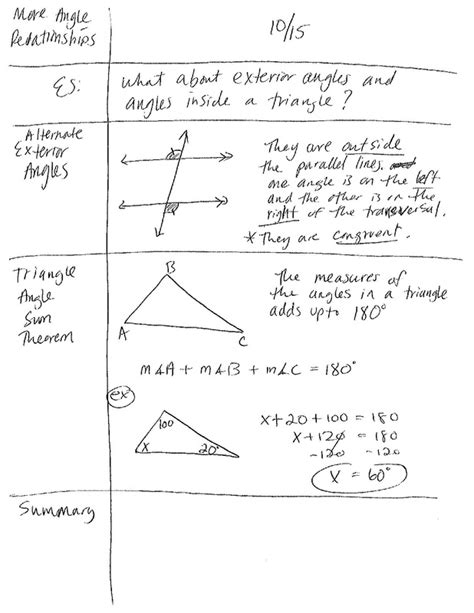 More Angle
Relationships
10/15
ES:
What about exterior angles and
angles inside a triangle?
Alternate
Exterior
Angles
They are outside
the parallel lines.
one angle is on the left
and the other is on the
right of the transversal.
* They are congruent.
Triangle
Angle
Sum
Theorem
B
A
C
The measures of
the angles in a triangle
adds up to 180°
m∠A + m∠B + m∠C = 180°
ex
100
x
20°
x + 20 + 100 = 180
x + 120 = 180
-120 -120
x = 60°
Summary